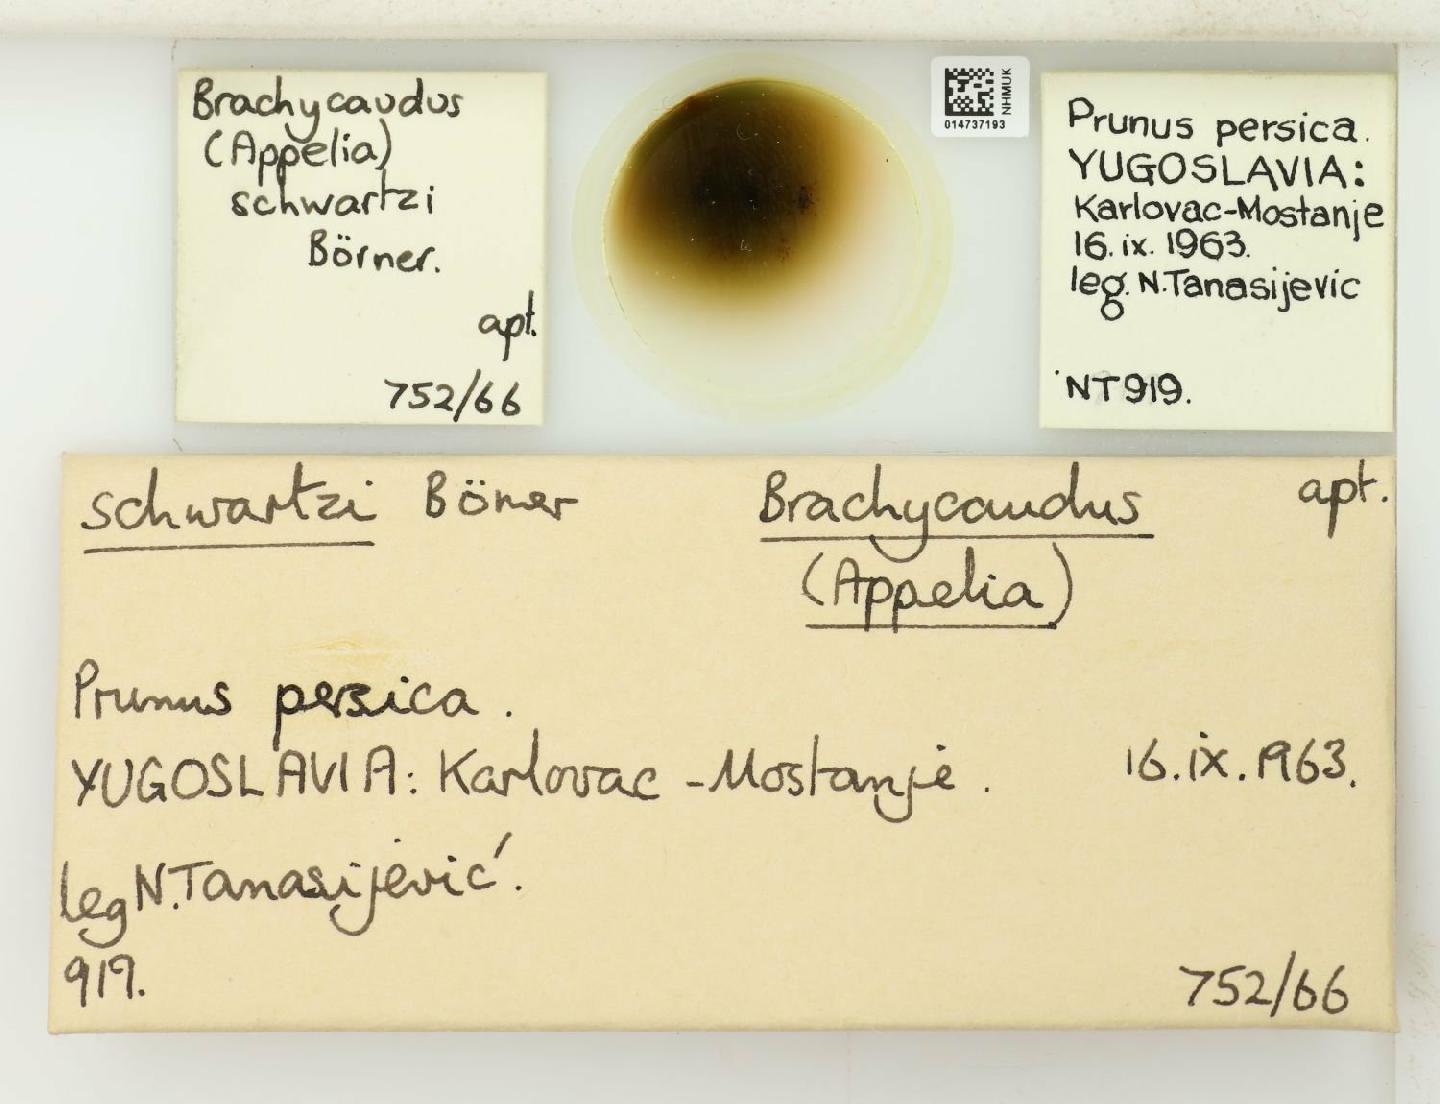 Brachycaudus
(Appelia)
schwartzi
Börner.
apt.
752/66
NHMUK
014737193
Prunus persica.
YUGOSLAVIA:
Karlovac-Mostanje
16.ix.1963.
leg. N.Tanasijevic
NT919.
schwartzi Börner Brachycaudus apt.
(Appelia)
Prunus persica.
YUGOSLAVIA: Karlovac-Mostanje. 16.ix.1963.
leg N.Tanasijević.
919.
752/66